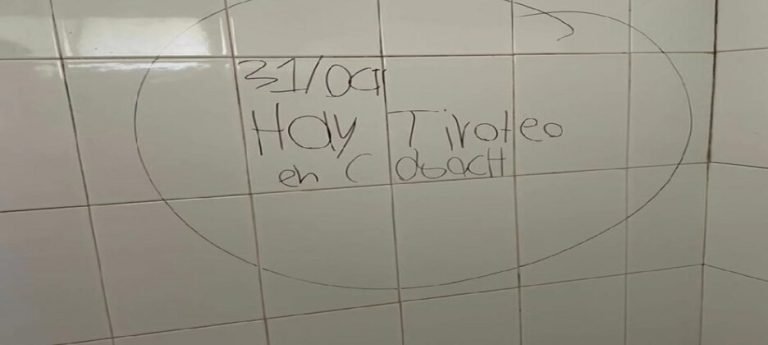 31/oct
Hay Tiroteo
en CobacH